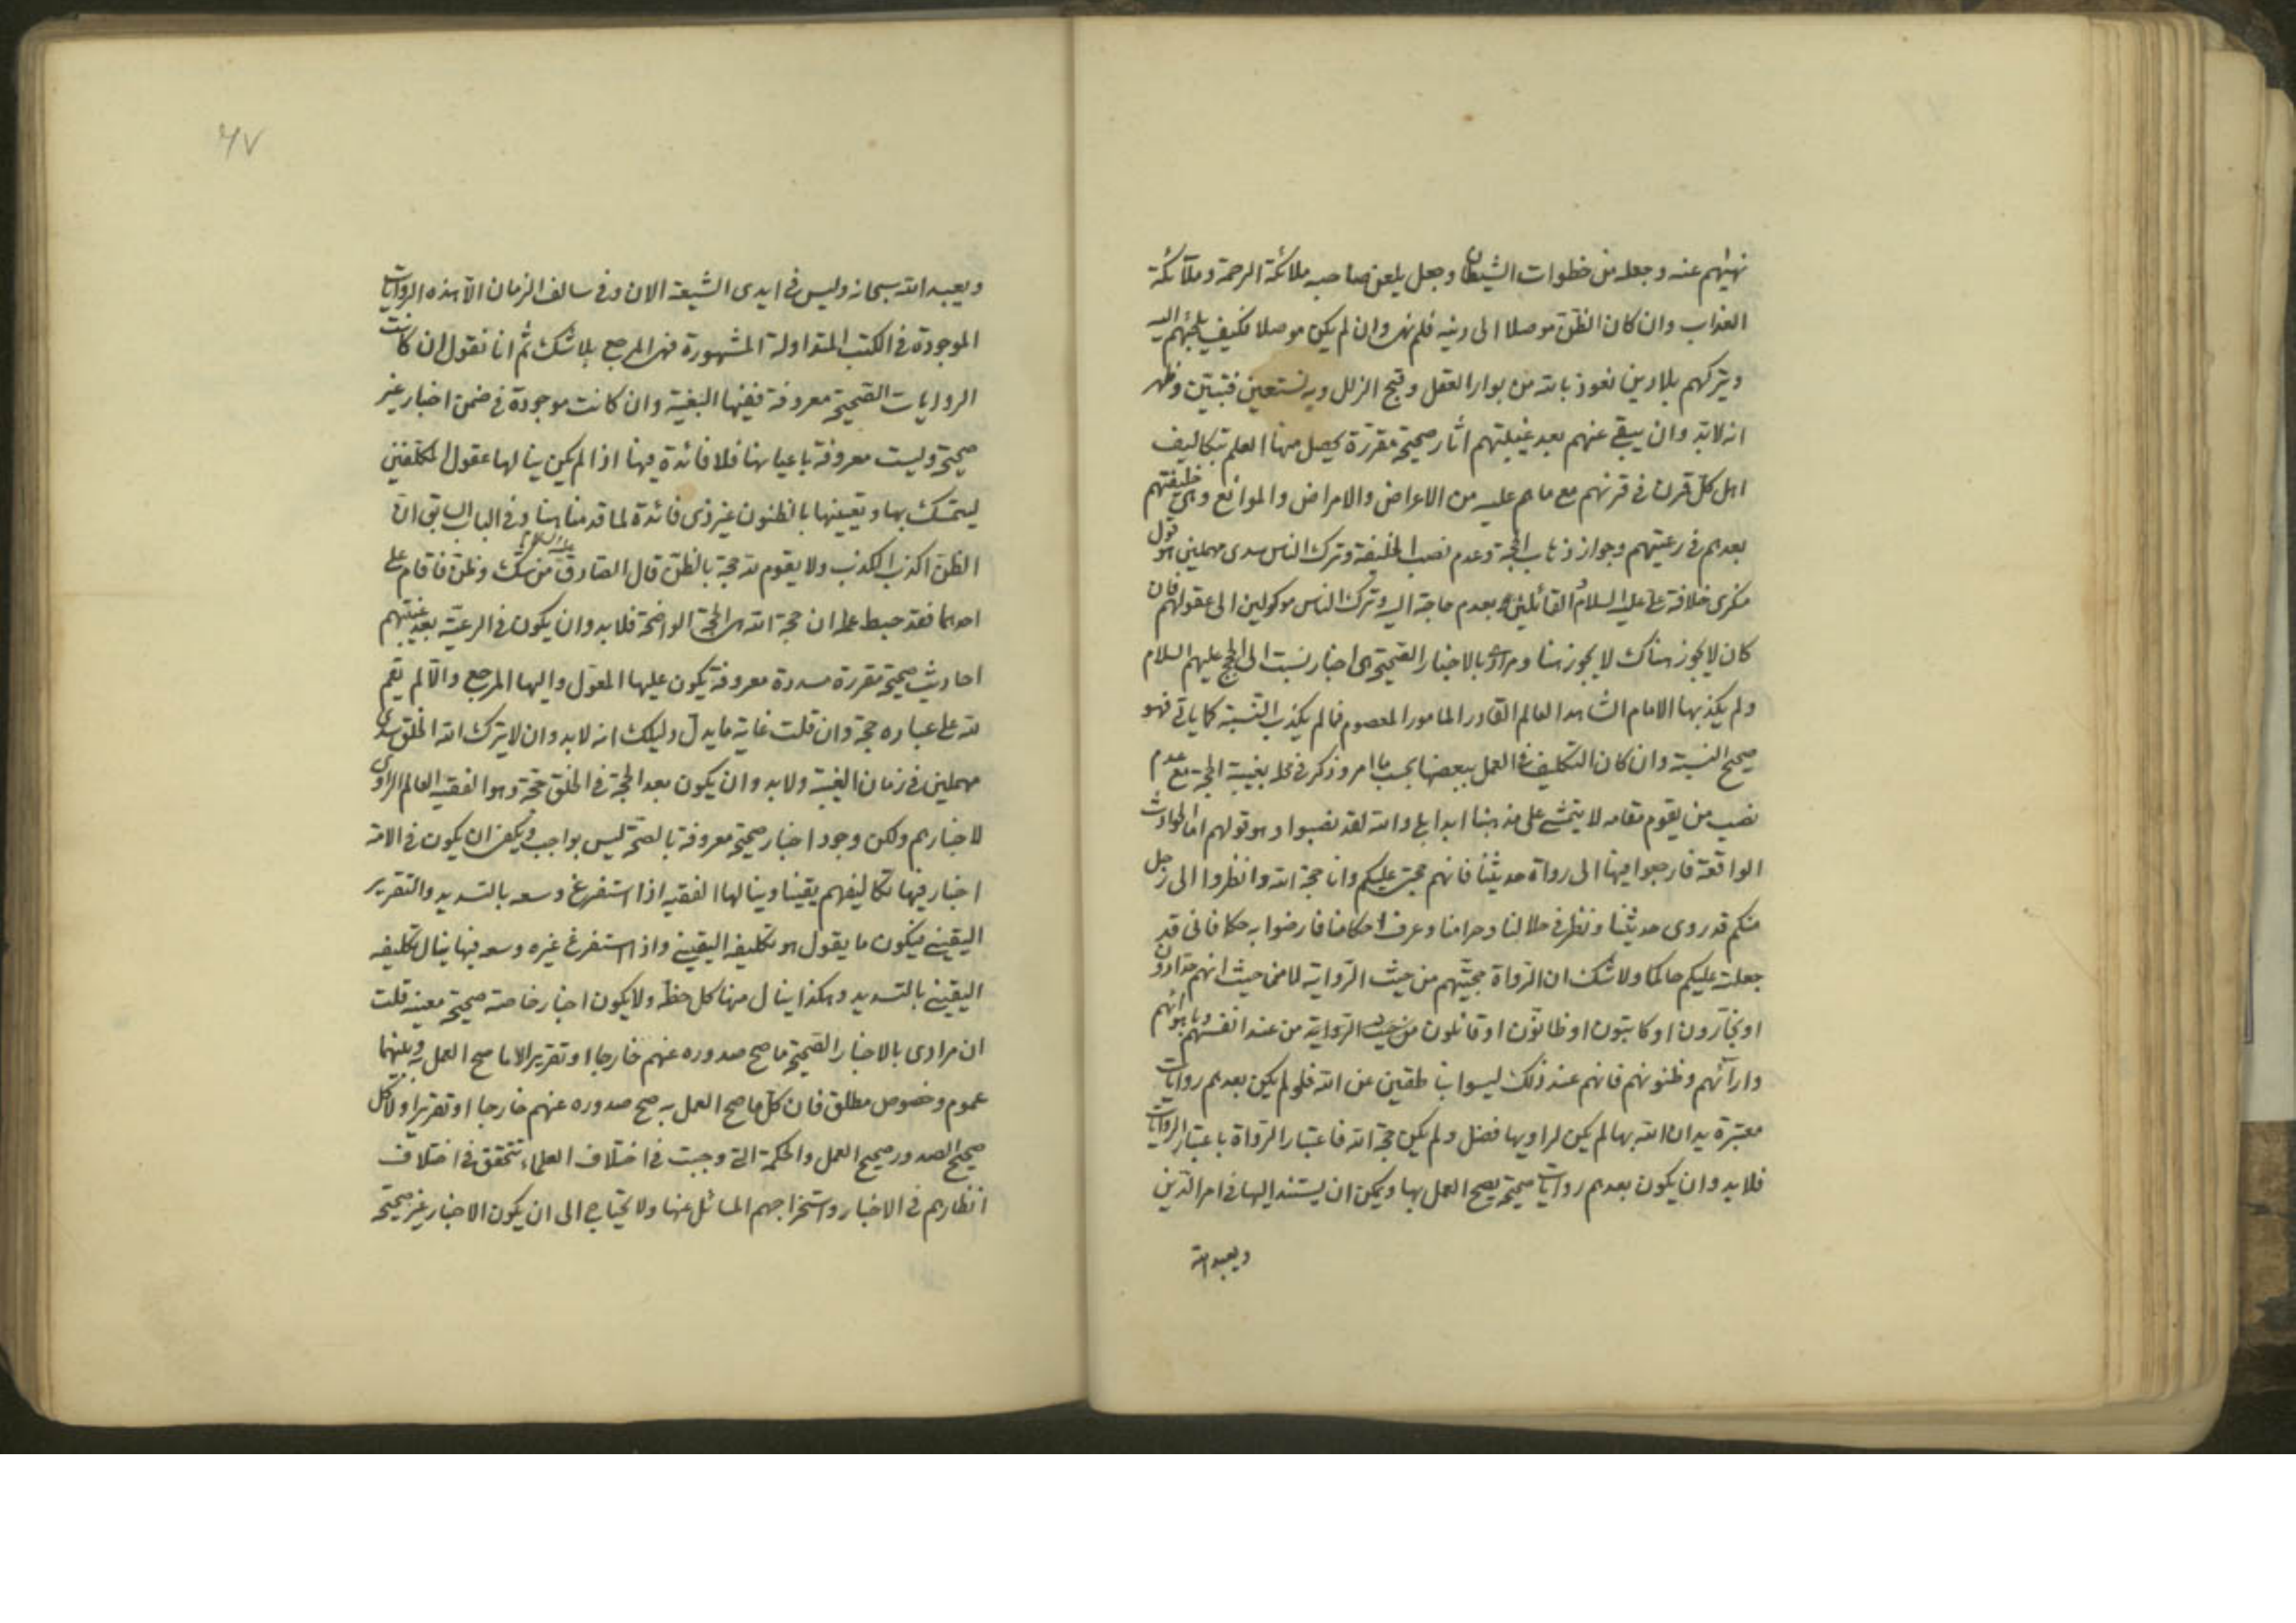 نهيهم عنه وجعله من خطوات الشيطان وجعل يلعن صاحبه ملائكة الرحمة وملائكة
العذاب وان كان الظن موصلا الى دينه فلم نهى وان لم يكن موصلا فكيف يلجئهم اليه
ويتركهم بلا دين نعوذ بالله من بوار العقل وقبح الزلل وبه نستعين فتبين وظهر
انه لابد وان يبقى عنهم بعد غيبتهم اثار صحيحة مقررة يحصل منها العلم بتكاليف
اهل كل قرن في قرنهم مع ما هم عليه من الاعراض والامراض والموانع وهي خليفتهم
بعدهم في رعيتهم وجواز ذهاب الحجة وعدم نصب الخليفة وترك الناس سدى مهملين هو قول
منكرى خلافة على عليه السلام القائلين بعدم حاجة اليه وترك الناس موكولين الى عقولهم فان
كان لا يجوز هناك لا يجوز هنا ومرادى بالاخبار الصحيحة هى اخبار نسبت الى الحجج عليهم السلام
ولم يكذبها الامام الشاهد العالم القادر المامور المعصوم فما لم يكذب النسبة كما ياتى فهو
صحيح النسبة وان كان التكليف فى العمل ببعضها بحسب ما امر وذكر فى محله بغيبة الحجة مع عدم
نصب من يقوم مقامه لا يتمشى على مذهبنا ابدا بلى والله لقد نصبوا وهو قولهم اما الحوادث
الواقعة فارجعوا فيها الى رواة حديثنا فانهم حجتى عليكم وانا حجة الله وانظروا الى رجل
منكم قد روى حديثنا ونظر فى حلالنا وحرامنا وعرف احكامنا فارضوا به حكما فانى قد
جعلته عليكم حاكما ولا شك ان الرواة حجيتهم من حيث الرواية لا من حيث انهم حدادون
او نجارون او كاتبون او ظانون او قائلون من حيث الرواية من عند انفسهم وباهوائهم
وارآئهم وظنونهم فانهم عند ذلك ليسوا بناطقين عن الله فلو لم يكن بعدهم روايات
معتبرة يدان الله بها لم يكن لراويها فضل ولم يكن حجة الله فاعتبار الرواة باعتبار الروايات
فلابد وان يكون بعدهم روايات صحيحة يصح العمل بها ويمكن ان يستند اليها فى امر الدين
ويعبد الله
٤٧
ويعبد الله سبحانه وليس فى ايدى الشيعة الان وفى سالف الزمان الا هذه الروايات
الموجودة فى الكتب المتداولة المشهورة فهى المرجع بلا شك ثم انا نقول ان كانت
الروايات الصحيحة معروفة ففيها البغية وان كانت موجودة فى ضمن اخبار غير
صحيحة وليست معروفة باعيانها فلا فائدة فيها اذا لم يكن ينالها عقول المكلفين
ليتمسك بها وتعيينها بالظنون غير ذى فائدة لما قدمنا هنا وفى الباب السابق ان
الظن اكذب الكذب ولا يقوم لله حجة بالظن قال الصادق عليه السلام من شك وظن فاقام على
احدهما فقد حبط عمله ان حجة الله هى الحجة الواضحة فلابد وان يكون فى الرعية بعد غيبتهم
احاديث صحيحة مقررة مسددة معروفة يكون عليها المعول واليها المرجع والا لم يقم
لله على عباده حجة وان قلت غاية ما يدل دليلك انه لابد وان لا يترك الله الخلق سدى
مهملين فى زمان الغيبة ولابد وان يكون بعد الحجة فى الخلق حجة وهو الفقيه العالم الراوى
لاخبارهم ولكن وجود اخبار صحيحة معروفة بالصحة ليس بواجب ويكفى ان يكون فى الامة
اخبار فيها تكاليفهم يقينا وينالها الفقيه اذا استفرغ وسعه بالتسديد والتقرير
اليقينى فيكون ما يقول هو تكليفه اليقينى واذا استفرغ غيره وسعه فيها ينال تكليفه
اليقينى بالتسديد وهكذا ينال منها كل حظه ولا يكون اخبار خاصة صحيحة معينة قلت
ان مرادى بالاخبار الصحيحة ما صح صدوره عنهم خارجا او تقريرا لا ما صح العمل به وبينهما
عموم وخصوص مطلق فان كل ما صح العمل به صح صدوره عنهم خارجا او تقريرا ولا كل
صحيح الصدور صحيح العمل والحكمة التى وجبت فى اختلاف العلماء تتحقق فى اختلاف
انظارهم فى الاخبار واستخراجهم المسائل عنها ولا يحتاج الى ان يكون الاخبار غير صحيحة